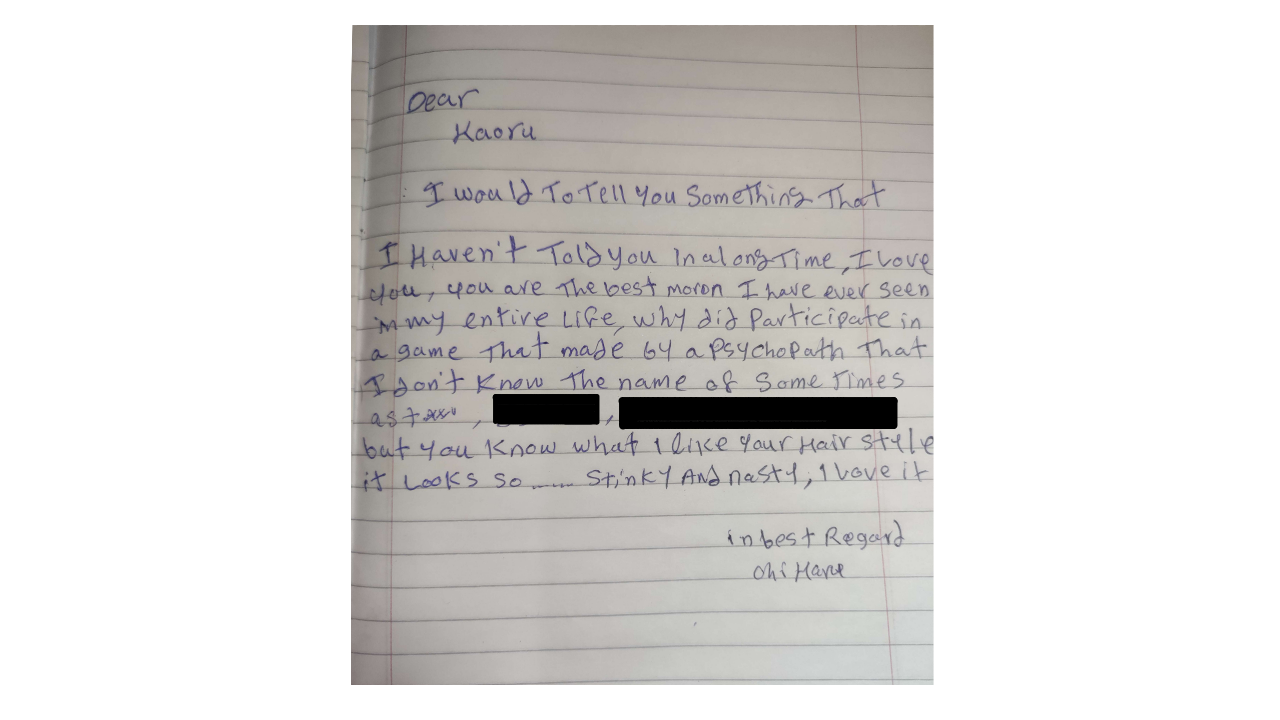 Dear
Kaoru
I would To Tell You Something That
I Haven't Told you in a long Time, I Love
you, you are The best moron I have ever seen
in my entire Life, why did Participate in
a game That made by a PsychoPath That
I don't Know The name of Some Times
,
but you Know what I like Your Hair style
it Looks so ...... Stinky And nasty, I Love it
in best Regard